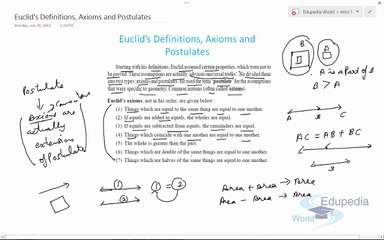 Edupedia World > Intro t
Euclid's Definitions, Axioms and Postulates
Monday, July 20, 2015    2:59 PM
Euclid's Definitions, Axioms and
Postulates
Starting with his definitions, Euclid assumed certain properties, which were not to
be proved. These assumptions are actually 'obvious universal truths'. He divided them
into two types: axioms and postulates. He used the term 'postulate' for the assumptions
that were specific to geometry. Common notions (often called axioms)
Euclid's axioms, not in his order, are given below :
(1) Things which are equal to the same thing are equal to one another.
(2) If equals are added to equals, the wholes are equal.
(3) If equals are subtracted from equals, the remainders are equal.
(4) Things which coincide with one another are equal to one another.
(5) The whole is greater than the part.
(6) Things which are double of the same things are equal to one another.
(7) Things which are halves of the same things are equal to one another.
Postulate
Axioms are
actually
extensions
of Postulate
1
2
1 = 2
B
A
A is a Part of B
B > A
A B C
AC = AB + BC
Area + Area → Area
Area - Area → Area
Edupedia
World